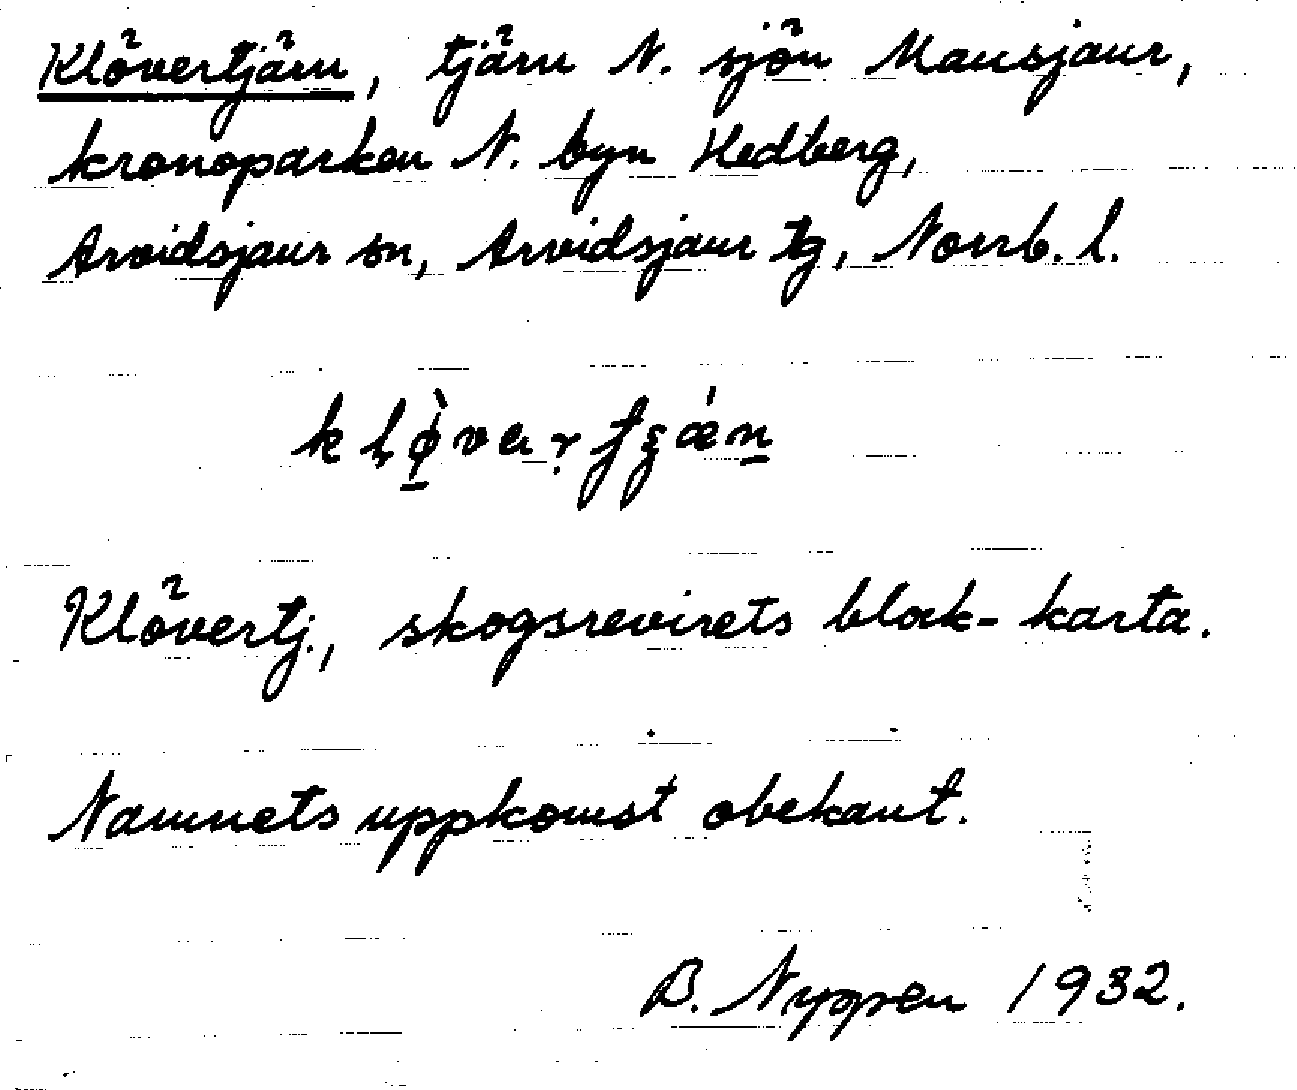 Klövertjärn, tjärn N. sjön Mausjaur,
kronoparken N. byn Hedberg,
Arvidsjaur sn, Arvidsjaur tg, Norrb. l.
Klövertj., skogsrevirets block-karta.
Namnets uppkomst obekant.
B. Nyppen 1932.